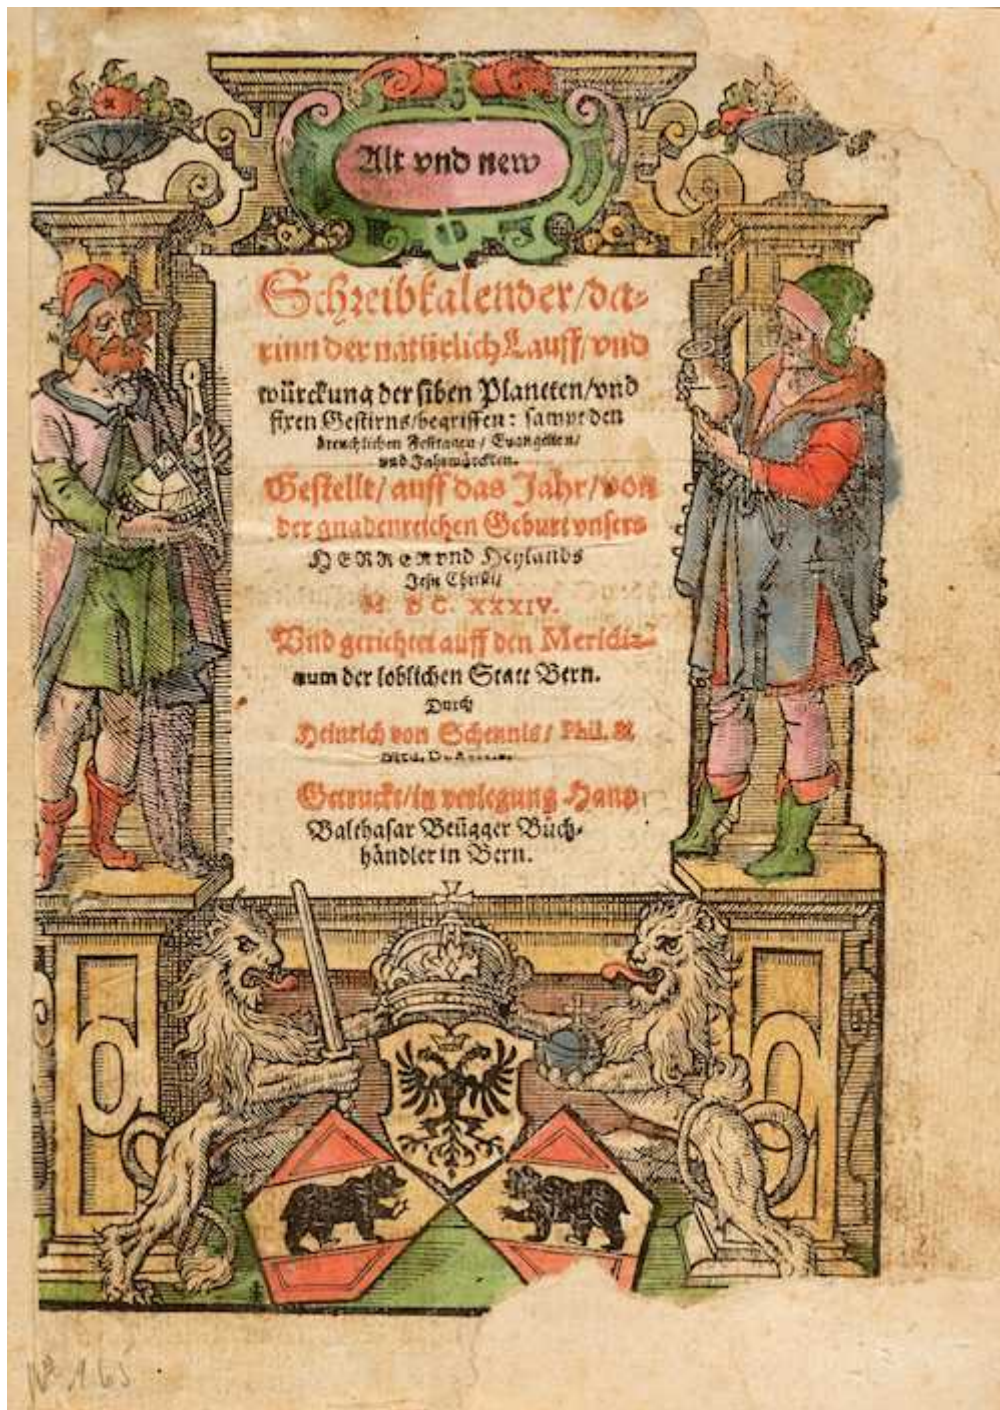 Alt vnd new
Schreibkalender/da-
rinn der natürlich Lauff/vnd
würckung der siben Planeten/vnd
fixen Gestirns/begriffen: sampt den
breuchlichen Festtagen/Euangelien/
vnd Jahrmärckten.
Gestellt/auff das Jahr/von
der gnadenreichen Geburt vnsers
HERREN vnd Heylands
Jesu Christi/
M. DC. XXXIV.
Vnd gerichtet auff den Meridia-
num der loblichen Statt Bern.
Durch
Heinrich von Schennis/ Phil. &
Med.
Getruckt/in verlegung Hans
Balthasar Beügger Buch-
händler in Bern.